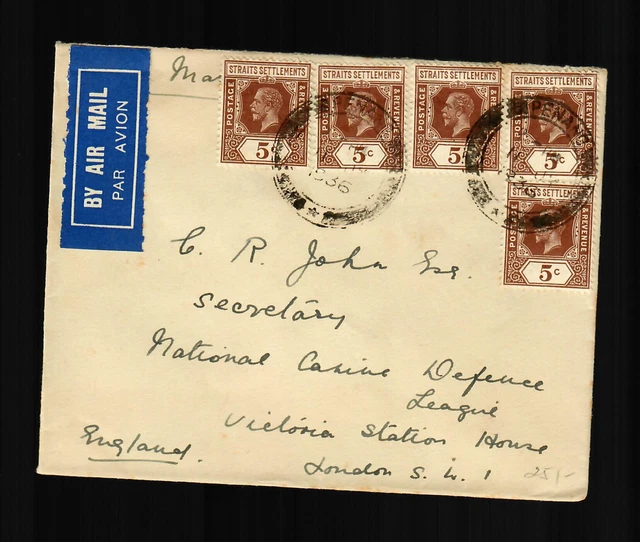 BY AIR MAIL
PAR AVION
STRAITS SETTLEMENTS
POSTAGE
& REVENUE
5c
STRAITS SETTLEMENTS
POSTAGE
& REVENUE
5c
STRAITS SETTLEMENTS
POSTAGE
& REVENUE
5
STRAITS SETTLEMENTS
POSTAGE
& REVENUE
5c
POSTAGE
REVENUE
5c
PENANG
1936
PENANG
C. R. John Esq.
Secretary
National Canine Defence
League
Victoria Station House
London S.W.1
England.
25/-